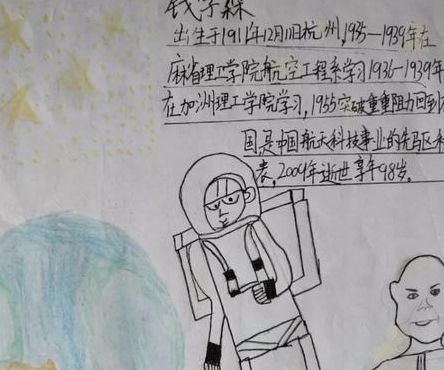 钱学森
出生于1911年12月11日杭州,1935—1939年在
麻省理工学院航空工程系学习1936—1939年
在加洲理工学院学习,1955突破重重阻力回到
国是中国航天科技事业的先马区和
表,2009年逝世享年98岁。